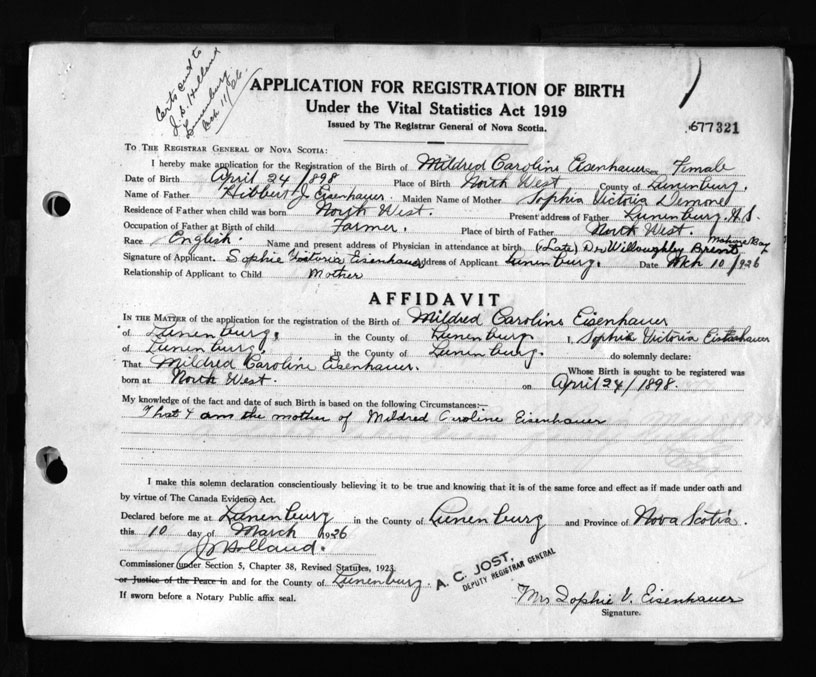 Certs out to
J. S. Holland
Lunenburg
11/26.
APPLICATION FOR REGISTRATION OF BIRTH
Under the Vital Statistics Act 1919
Issued by The Registrar General of Nova Scotia.
677321
To The Registrar General of Nova Scotia:
I hereby make application for the Registration of the Birth of Mildred Caroline Eisenhauer sex Female
Date of Birth April 24/1898 Place of Birth North West County of Lunenburg.
Name of Father Hibbert J. Eisenhauer. Maiden Name of Mother Sophia Victoria Demone
Residence of Father when child was born North West. Present address of Father Lunenburg. N.S.
Occupation of Father at Birth of child Farmer. Place of birth of Father North West.
Race English. Name and present address of Physician in attendance at birth. (Late) Dr Willoughby Brent Mahone Bay
Signature of Applicant. Sophie Victoria Eisenhauer Address of Applicant Lunenburg. Date Mch 10/1926
Relationship of Applicant to Child Mother
AFFIDAVIT
In the Matter of the application for the registration of the Birth of Mildred Caroline Eisenhauer
of Lunenburg, in the County of Lunenburg I, Sophie Victoria Eisenhauer
of Lunenburg. in the County of Lunenburg. do solemnly declare:
That Mildred Caroline Eisenhauer. Whose Birth is sought to be registered was
born at North West. on April 24/1898.
My knowledge of the fact and date of such Birth is based on the following Circumstances:—
That I am the mother of Mildred Caroline Eisenhauer
I make this solemn declaration conscientiously believing it to be true and knowing that it is of the same force and effect as if made under oath and
by virtue of The Canada Evidence Act.
Declared before me at Lunenburg in the County of Lunenburg and Province of Nova Scotia.
this 10 day of March 1926
J. Holland.
Commissioner (under Section 5, Chapter 38, Revised Statutes, 1923
or Justice of the Peace in and for the County of Lunenburg.
If sworn before a Notary Public affix seal.
A. C. JOST,
DEPUTY REGISTRAR GENERAL
Mrs Sophie V. Eisenhauer
Signature.